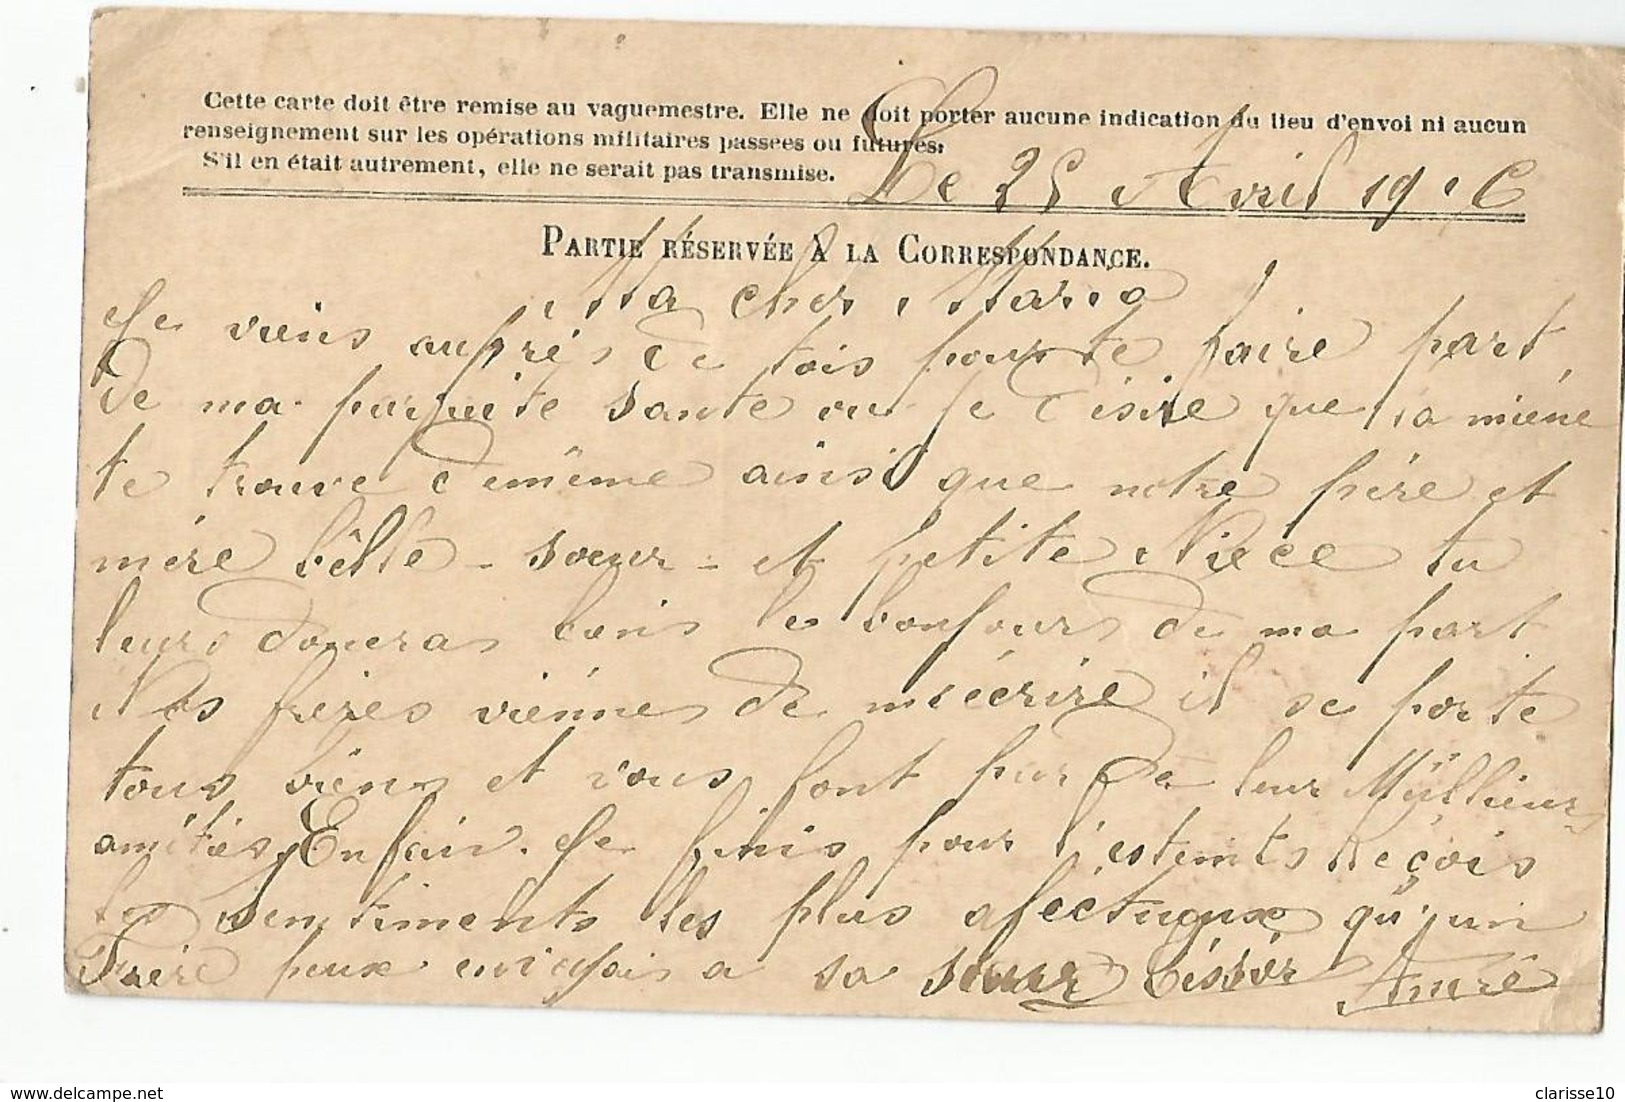 Cette carte doit être remise au vaguemestre. Elle ne doit porter aucune indication du lieu d'envoi ni aucun
renseignement sur les opérations militaires passées ou futures.
S'il en était autrement, elle ne serait pas transmise.
Le 25 Avril 1916
PARTIE RÉSERVÉE À LA CORRESPONDANCE.
Ma cher Maria
Je viens auprés de tois pour te faire part
de ma parfaite santé je désire que la miéne
te trouve de même ainsi que notre pére et
mére bêlle - soeur - et petite Niéce tu
leurs doneras bons le bonjours de ma part
Nos fréres viénnes de mécrire il se porte
tous biens et vous font par de leur Myllieur
amitiés Enfain. Je finis pour l'estents Reçois
les sentiments les plus aféctueux qu'un
Frére peux envoyais a sa soeur